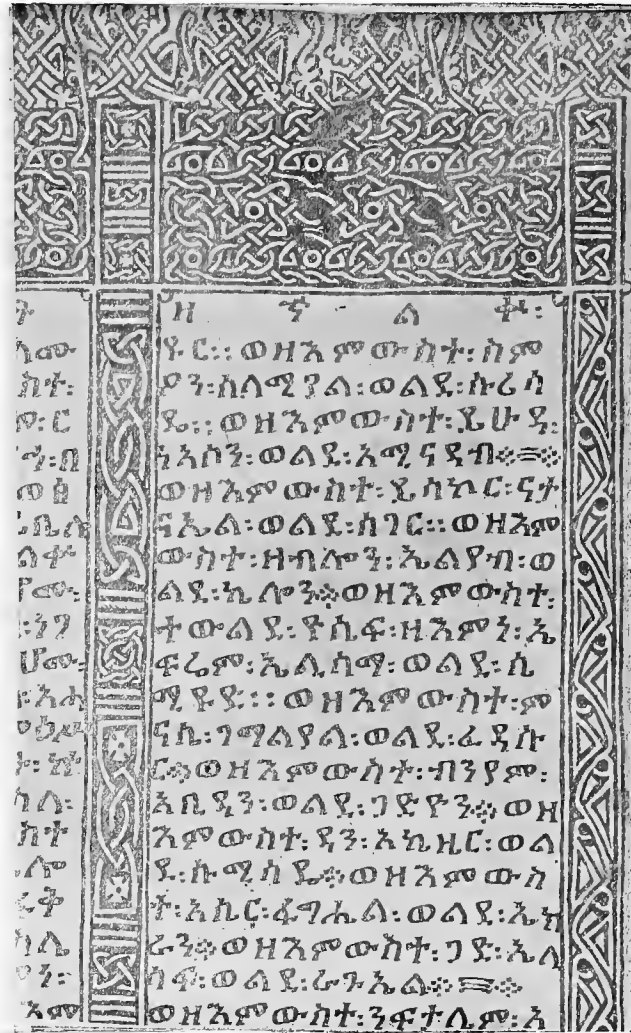 ዘ ኍ ል ቍ ፡
ዩር፡፡ወዘእምውስተ፡ስም
ዖን፡ሰለሚያል፡ወልደ፡ሱሪሳ
ዴ፡፡ወዘእምውስተ፡ይሁዳ፡
ነአሶን፡ወልደ፡አሚናዳብ፨
ወዘእምውስተ፡ይሳኮር፡ናታ
ናኤል፡ወልደ፡ሰገር፡፡ወዘእም
ውስተ፡ዘብሎን፡ኤልያብ፡ወ
ልደ፡ኬሎን፨ወዘእምውስተ፡
ተውልደ፡ዮሴፍ፡ዘእምነ፡ኤ
ፍሬም፡ኤሊስማ፡ወልደ፡ሴ
ሚዩድ፡፡ወዘእምውስተ፡ም
ናሴ፡ገማልያል፡ወልደ፡ፈዳሱ
ር፨ወዘእምውስተ፡ብንያም፡
አቢዳን፡ወልደ፡ጋድዮን፨ወዘ
እምውስተ፡ዳን፡አኪዜር፡ወል
ደ፡ሱሚሳዴ፨ወዘእምውስ
ተ፡አሴር፡ፋግሔል፡ወልደ፡ኤክ
ራን፨ወዘእምውስተ፡ጋድ፡ኤለ
ሳፍ፡ወልደ፡ራጉኤል፨
ወዘእምውስተ፡ንፍተሌም፡አ